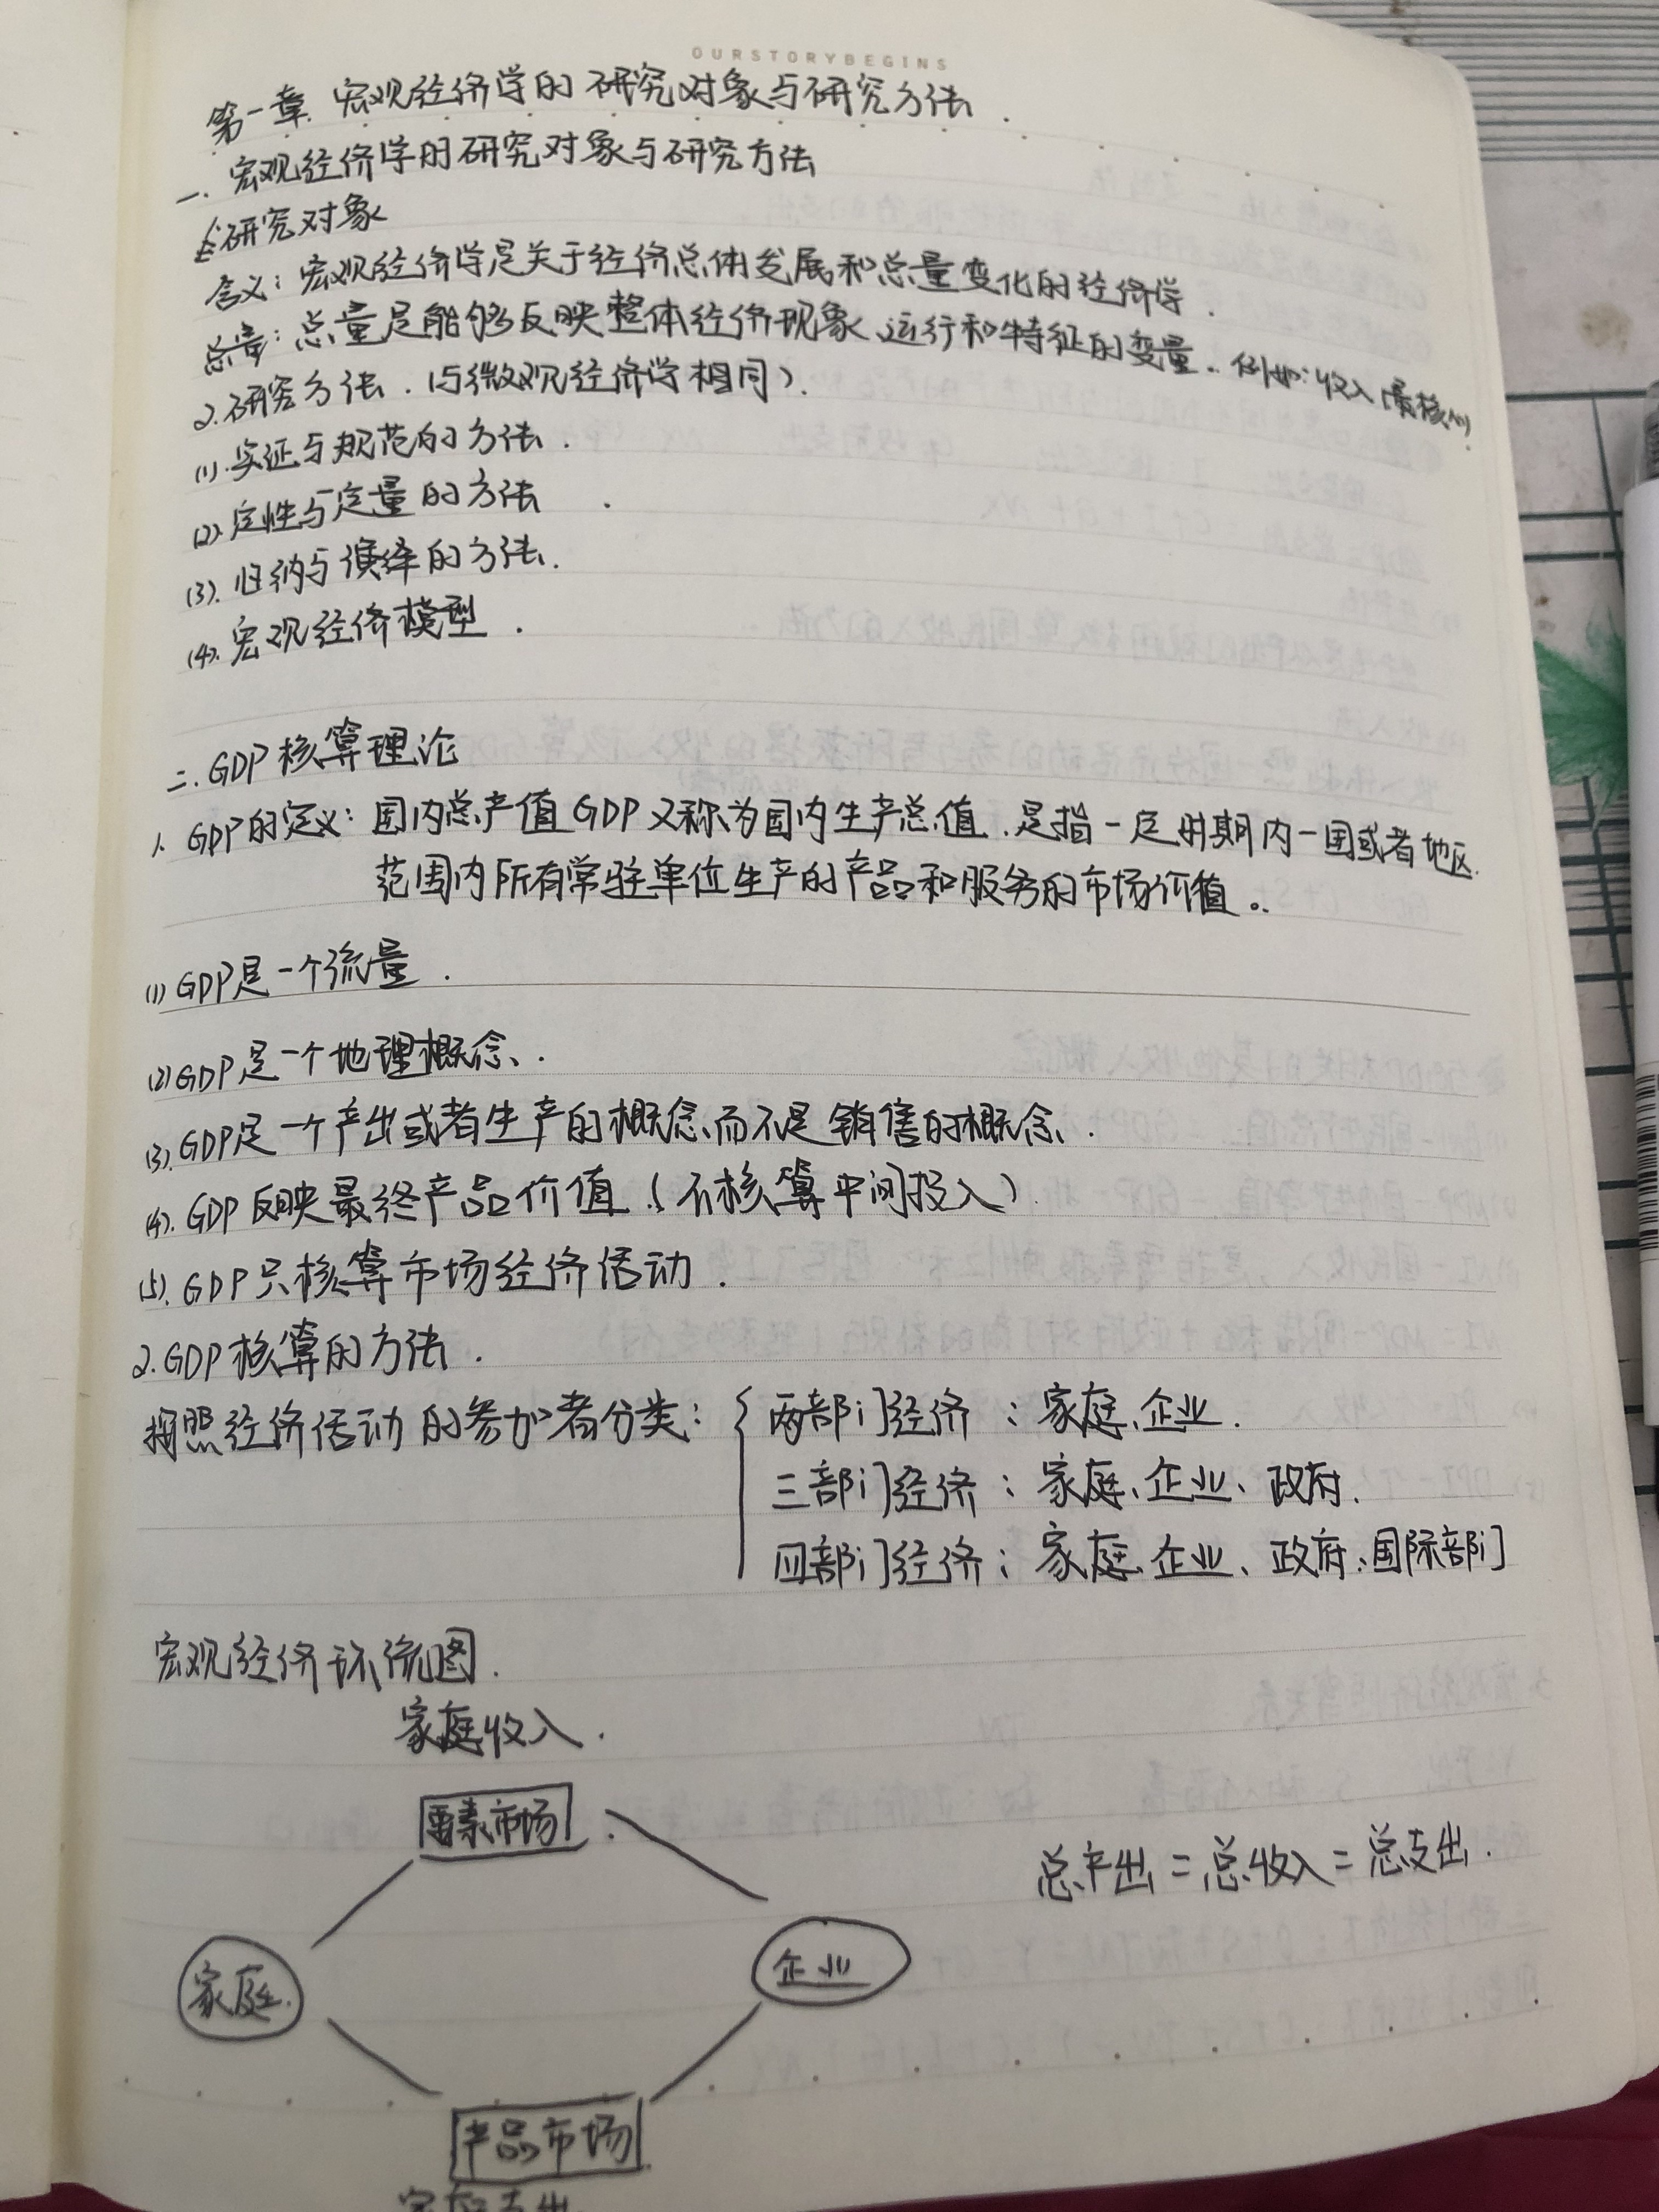 OURSTORYBEGINS
第一章. 宏观经济学的研究对象与研究方法
一. 宏观经济学的研究对象与研究方法
1.研究对象
含义：宏观经济学是关于经济总体发展和总量变化的经济学.
总量：总量是能够反映整体经济现象、运行和特征的变量. 例如：收入（最核心）
2.研究方法.（与微观经济学相同）.
(1).实证与规范的方法.
(2).定性与定量的方法
(3).归纳与演绎的方法.
(4).宏观经济模型.
二.GDP核算理论
1. GDP的定义：国内总产值GDP又称为国内生产总值.是指一定时期内一国或者地区
范围内所有常驻单位生产的产品和服务的市场价值。
(1)GDP是一个流量.
(2)GDP是一个地理概念.
(3).GDP是一个产出或者生产的概念而不是销售的概念.
(4).GDP反映最终产品价值.（不核算中间投入）
(5).GDP只核算市场经济活动.
2.GDP核算的方法.
按照经济活动的参加者分类：{ 两部门经济：家庭、企业.
三部门经济：家庭、企业、政府.
四部门经济：家庭、企业、政府、国际部门
宏观经济环流图.
家庭收入.
要素市场
总产出=总收入=总支出.
家庭.
企业
产品市场
家庭支出